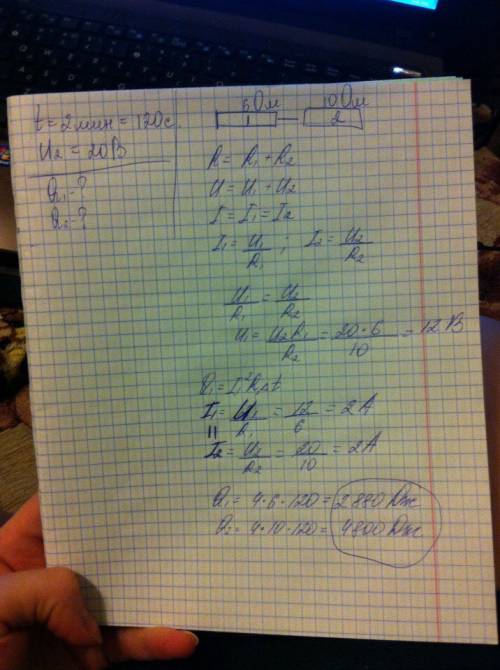 t = 2 мин = 120 с.
U₂ = 20 В
Q₁ - ?
Q₂ - ?
6 Ом 10 Ом
1 2
R = R₁ + R₂
U = U₁ + U₂
I = I₁ = I₂
I₁ = U₁/R₁ ; I₂ = U₂/R₂
U₁/R₁ = U₂/R₂
U₁ = U₂R₁/R₂ = 20·6/10 = 12 В
Q₁ = I₁²R₁Δt
I₁ = U₁/R₁ = 12/6 = 2 А
=
I₂ = U₂/R₂ = 20/10 = 2 А
Q₁ = 4·6·120 = 2880 Дж
Q₂ = 4·10·120 = 4800 Дж